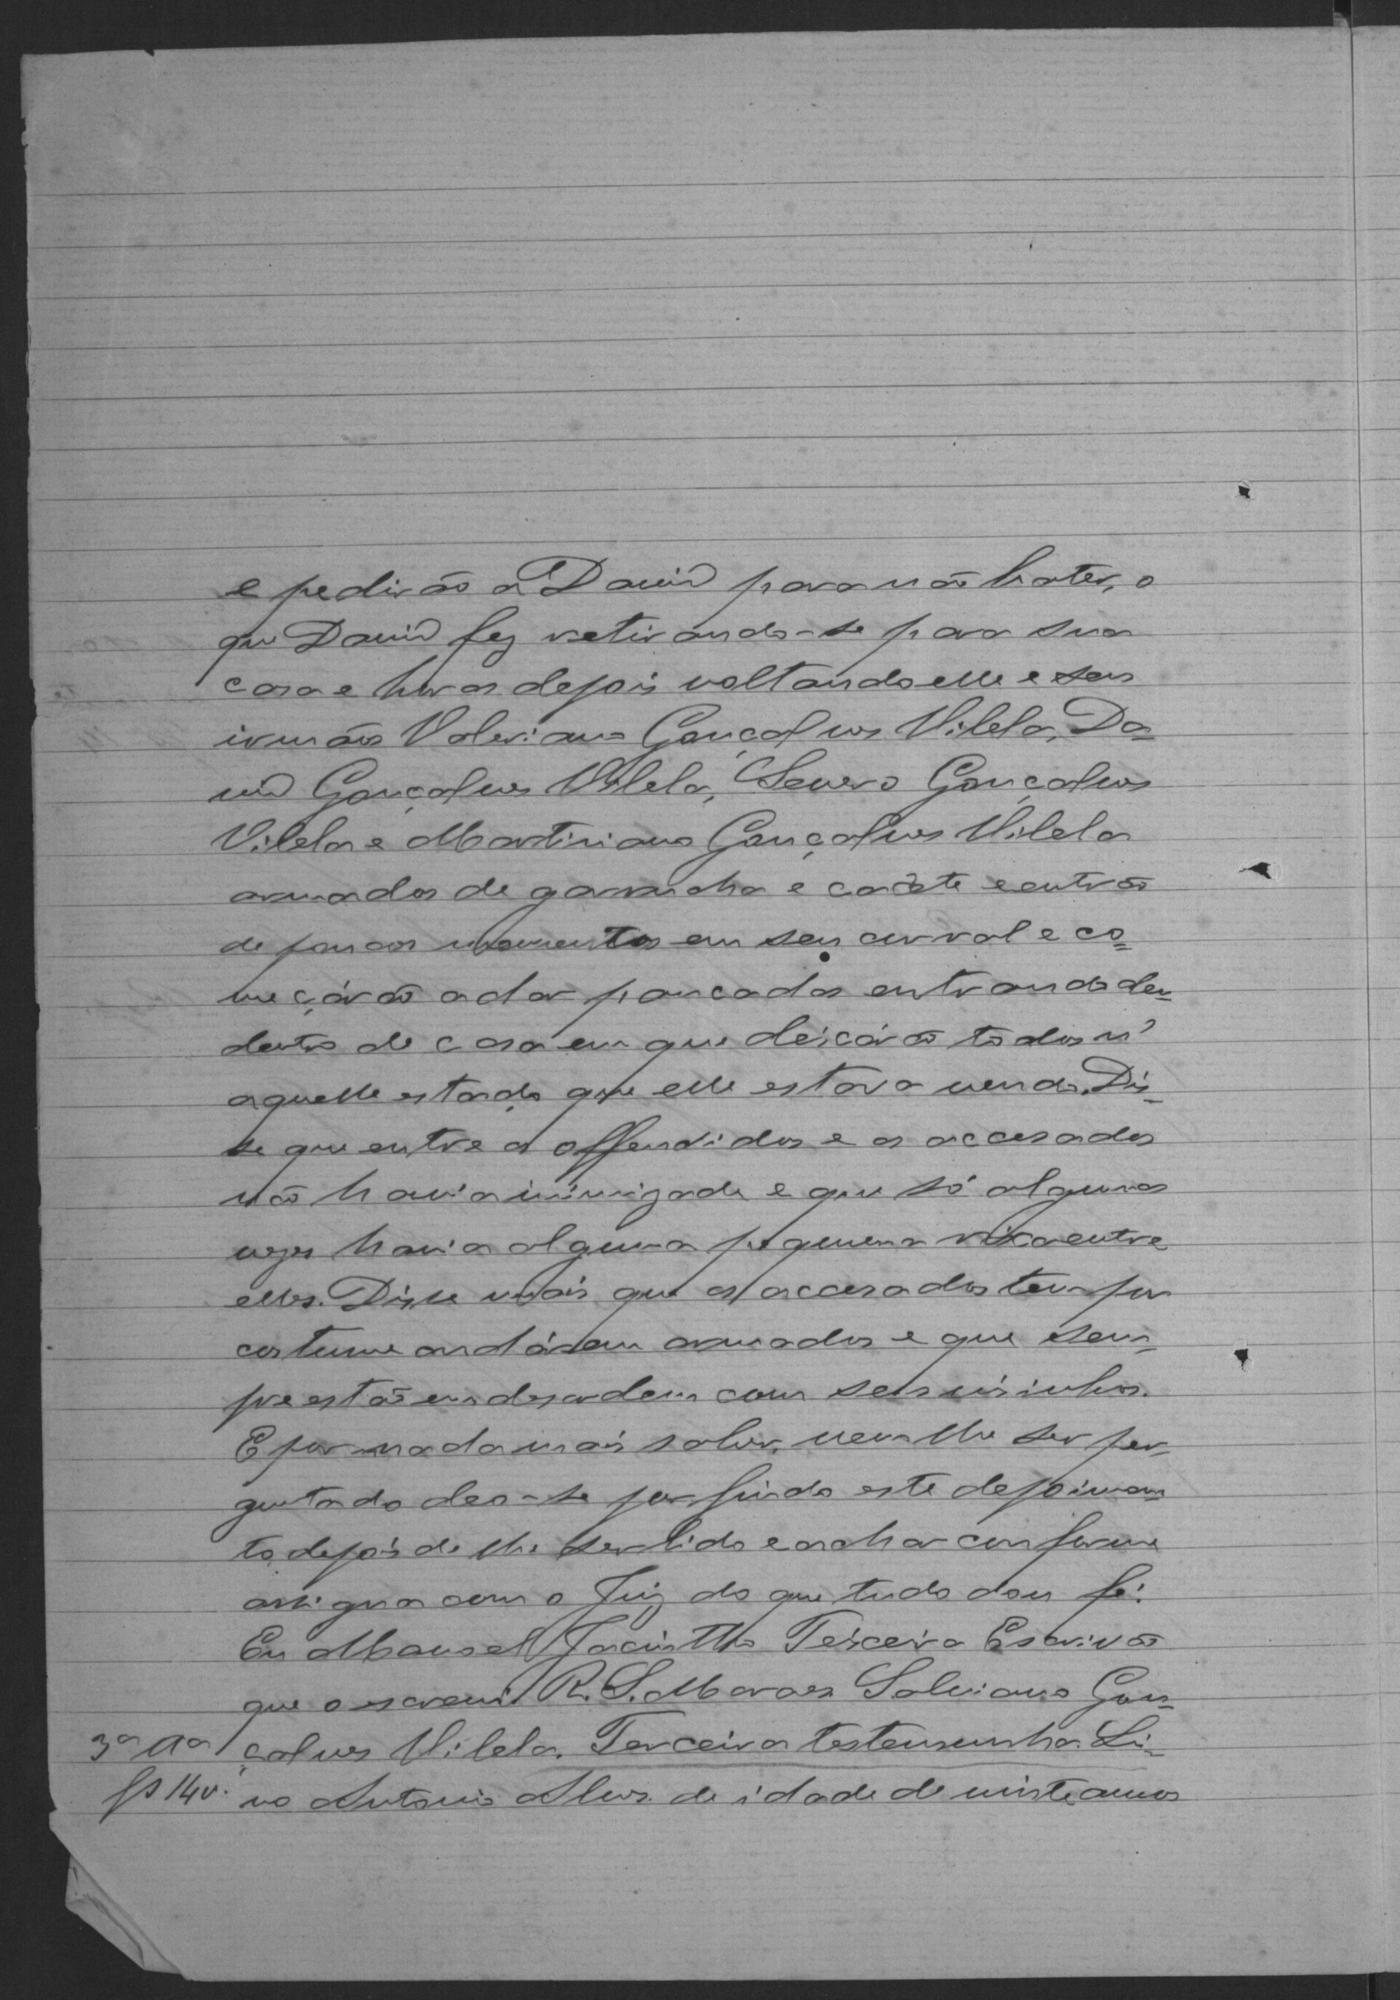 e pedirão a David para não bater, o
que David fez retirando-se para sua
casa e horas depois voltando elle e seus
irmãos Valeriano Gonçalves Vilela, Da=
vid Gonçalves Vilela, Severo Gonçalves
Vilela e Martiniano Gonçalves Vilela
armados de garrucha e caséte e entrão
de poucos momentos em seu curral e co=
meçárão a dar pancadas entrando den=
dentro de casa em que deicárão todos n'
aquelle estado que elle estava vendo. Dis=
se que entre os offendidos e os accusados
não havia inimizade e que só algumas
vezes havia alguma pequena rixa entre
elles. Disse mais que os accusados tem por
costume andárem armados e que sem=
pre estão em desordem com seus visinhos.
E por nada mais saber, nem lhe ser per=
guntado deo-se por findo este depoimen=
to, depois de lhe ser lido e achar conforme
assigna com o Juiz do que tudo dou fé.
Eu Manoel Jacintho Teixeira Escrivão
que o escrevi R. S. Moraes Salviano Gon=
3ª ttª çalves Vilela. Terceira testemunha. Li=
fs 14v. no Antonio Alves. de idade de vinte annos